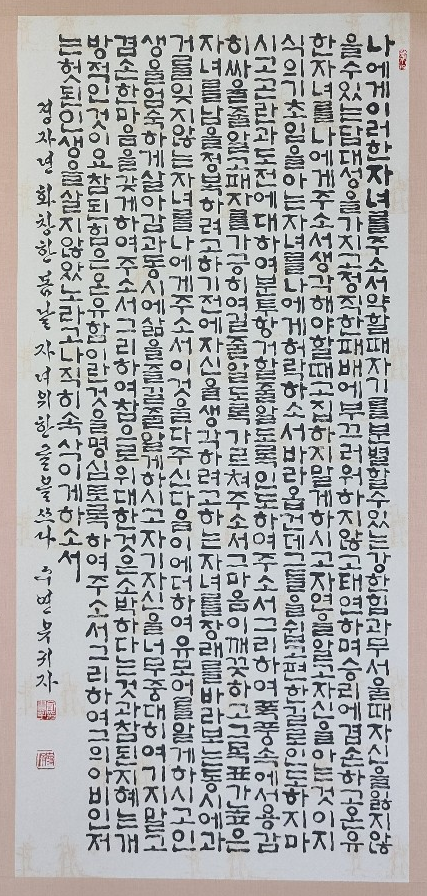 나에게이러한자녀를주소서약할때자기를분별할수있는강한힘과무서울때자신을잃지않
을수있는담대성을가지고정직한패배에부끄러워하지않고태연하며승리에겸손하고온유
한자녀를나에게주소서생각해야할때고집하지말게하시고자연을알고자신을아는것이지
식의기초임을아는자녀를나에게허락하소서바라옵건데그를쉽고편한길로인도하지마
시고고난과도전에대하여분투항거할줄알도록인도하여주소서그리하여폭풍속에서용감
히싸울줄알고패자를가긍히여길줄알도록가르쳐주소서그마음이깨끗하고그목표가높은
자녀를남을정복하려고하기전에자신을생각하려고하는자녀를장래를바라보는동시에과
거를잊지않는자녀를나에게주소서이것을다주신다음이에더하여유모어를알게하시고인
생을엄숙하게살아감과동시에삶을즐길줄알게하시고자기자신을너무중대히여기지말고
겸손한마음을갖게하여주소서그리하여참으로위대한것은소박하다는것과참된지혜는개
방적인것이요참된힘은온유함이란것을명심토록하여주소서그리하여그의아비인저
는헛된인생을살지않았노라고나직히속삭이게하소서
정자년 화창한 봄날 자녀위한 글을쓰다